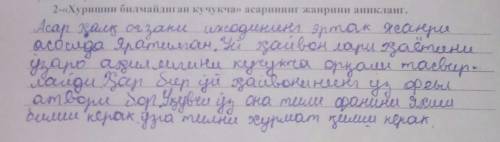 2-«Хуришни билмайдиган кучукча» асарининг жанрини аникланг.
Асар халқ оғзаки ижодининг эртак жанри
асосида яратилган. Уй ҳайвонлари ҳаётини
ўзаро аҳиллигини кучукча орқали тасвир-
лайди. Ҳар бир уй ҳайвонининг ўз феъл
атвори бор. Ўқувчи ўз она тили фанини яхши
билиши керак, ўзга тилни хурмат қилиш керак.